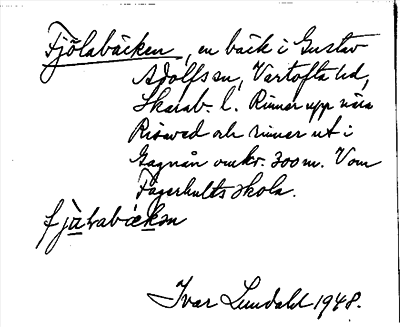 Fjölabäcken, en bäck i Gustav
Adolfs sn, Vartofta hd,
Skarab. l. Rinner upp nära
och rinner ut i
Gagnån omkr. 300 m. V om
Fagerhults skola.
Ivar Lundahl 1948.